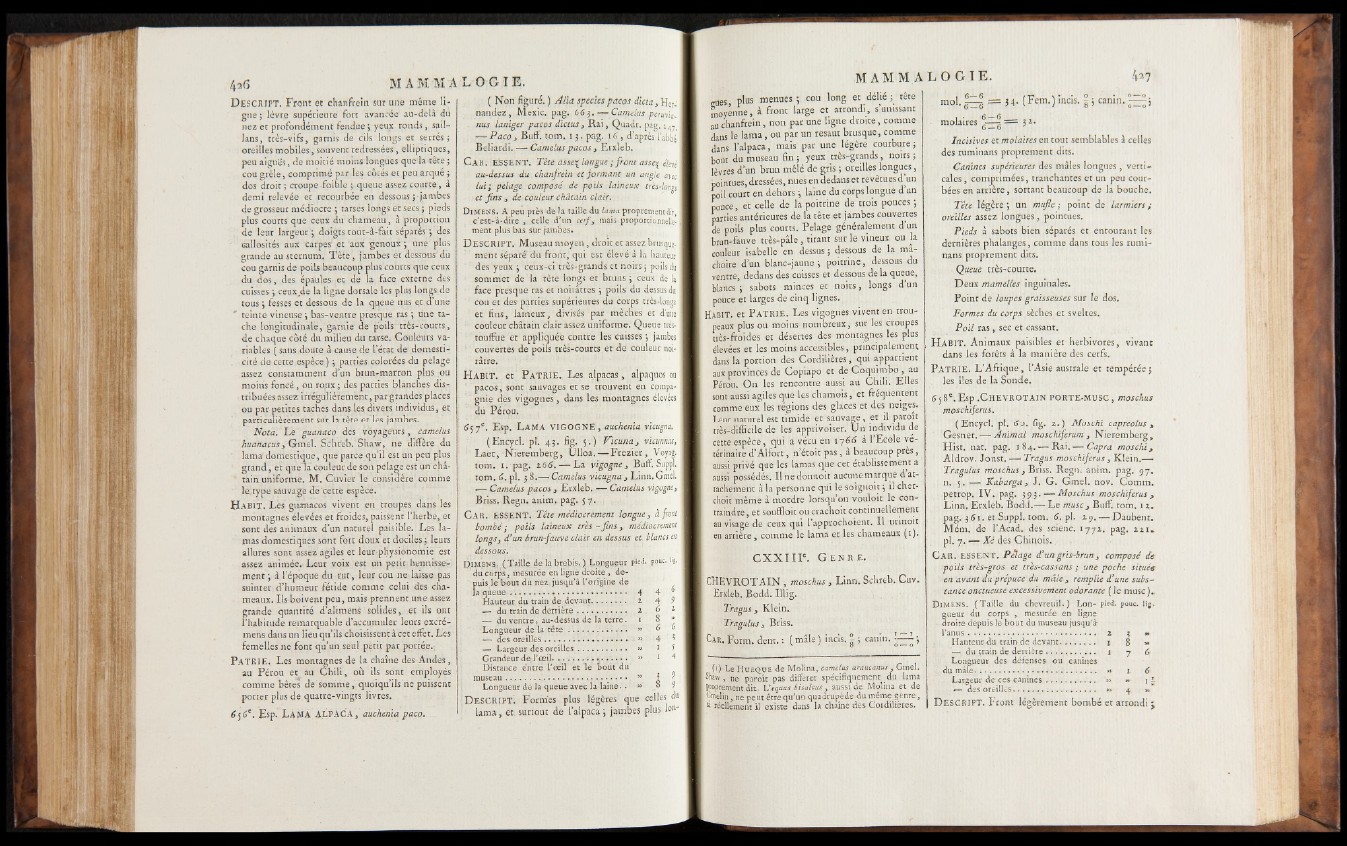 426 MAMMALOGIE.
DESCRIPT. Front et chanfrein sur une même li-
gne ; lèvre supérieure fort avancée au-delà du
nez et profondément fendue ; yeux ronds, sail-
lans, très-vifs, garnis de cils longs et serrés ;
oreilles mobiles, souvent redressées, elliptiques,
peu aiguës, de moitié moins longues que la tête ;
cou grêle, comprimé par les côtés et peu arqué ;
dos droit ; croupe foible ; queue assez courte, à
demi relevée et recourbée en dessous ; jambes
de grosseur médiocre ; tarses longs et secs ; pieds
plus courts que ceux du chameau, à proportion
de leur largeur ; doigts tout-à-fait séparés ; des
callosités aux carpes et aux genoux ; une plus
grande au sternum. Tête, jambes et dessous du
cou garnis de poils beaucoup plus courts que ceux
du dos, des épaules et de la face externe des
cuisses ; ceux de la ligne dorsale les plus longs de
tous ; fesses et dessous de la queue nus et d'une
teinte vineuse ; bas-ventre presque ras ; une ta-
che longitudinale, garnie de poils très-courts,
de chaque côté du milieu du tarse. Couleurs va-
riables ( sans doute à cause de l'état de domesti-
cité de cette espèce ) ; parties colorées du pelage
assez constamment d'un brun-marron plus ou
moins foncé, ou roux ; des parties blanches dis-
tribuées assez irrégulièrement, par grandes places
ou par petites taches dans les divers individus, et
particulièrement sur la tête et les jambes.
Nota. Le guanaco des voyageurs, camelus
huanacus, Gmel. Schreb. Shaw, ne diffère du
lama domestique, que parce qu'il est un peu plus
grand, et que la couleur de son pelage est un châ-
tain uniforme. M. Cuvier le considère comme
le type sauvage de cette espèce.
HABIT. Les guanacos vivent en troupes dans les
montagnes élevées et froides, paissent l'herbe, et
sont des animaux d'un naturel paisible. Les la-
mas domestiques sont fort doux et dociles ; leurs
allures sont assez agiles et leur physionomie est
assez animée. Leur voix est un petit hennisse-
ment ; à l'époque du rut, leur cou ne laisse pas
suinter d'humeur fétide comme celui des cha-
meaux. Ils boivent peu, mais prennent une assez
grande quantité d'alimens solides, et ils ont
l'habitude remarquable d'accumuler leurs excré-
mens dans un lieu qu'ils choisissent à cet effet. Les
femelles ne font qu'un seul petit par portée.
PATRIE. Les montagnes de la chaîne des Andes,
au Pérou et au Chili, où ils sont employés
comme bêtes de somme, quoiqu'ils ne puissent
porter plus de quatre-vingts livres.
656e. Esp. LAMA ALPACA, auchenia paco.
( Non figuré. ) Alia species pacos dicta, Her-
nandez, Mexic. pag. 663. — Camelus peruvia-
nus laniger pacos dictus, Rai, Quadr. pag. 147.
— Paco, Buff. tom. 13. pag. 16, d'après l'abbé
Beliardi. — Camelus pacos, Erxleb.
CAR. ESSENT. Tête assez longue ; front assez élevé
au-dessus du chanfrein et formant un angle avec
lui ; pelage composé de poils laineux très-longs
et fins, de couleur châtain clair.
DIMENS. A peu près de la taille du lama proprement dit,
c'est-à-dire, celle d'un cerf, mais proportionnelle-
ment plus bas sur jambes.
DESCRIPT. Museau moyen, droit et assez brusque-
ment séparé du front, qui est élevé à la hauteur
des yeux ; ceux-ci très-grands et noirs ; poils du
sommet de la tête longs et bruns ; ceux de la
face presque ras et noirâtres ; poils du dessus du
cou et des parties supérieures du corps très-longs
et fins, laineux, divisés par mèches et d'une
couleur châtain clair assez uniforme. Queue très-
touffue et appliquée contre les cuisses ; jambes
couvertes de poils très-courts et de couleur noi-
râtre.
HABIT. et PATRIE. Les alpacas, alpaquos ou
pacos, sont sauvages et se trouvent en compa-
gnie des vigognes, dans les montagnes élevées
du Pérou.
657e. Esp. LAMA VIGOGNE, auchenia vicugna.
( Encycl. pl. 43. fig. 5. ) Vicuna, vicunnas,
Laet, Nieremberg, Ulloa. — Frezier, Voyag.
tom. 1. pag. 266. — La vigogne, Buff. Suppl.
tom. 6. pl. 38. — Camelus vicugna, Linn. Gmel.
— Camelus pacos, Erxleb. — Camelus vigogne,
Briss. Regn. anim. pag. 57.
CAR. ESSENT. Tête médiocrement longue, à front
bombé ; poils laineux très-fins, médiocrement
longs, d'un brun-fauve clair en dessus et blancs en
dessous.
DIMENS. ( Taille de la brebis. ) Longueur pied. pouc. lig.
du corps, mesurée en ligne droite, de-
puis le bout du nez jusqu'à l'origine de
la queue . . . . . 4 4 6
Hauteur du train de devant. . . . . 2 4 9
— du train de derrière . . . . . 2 6 2
— du ventre, au-dessus de la terre. 1 8 »
Longueur de la tête . . . . . » 6 6
— des oreilles . . . . . » 4 3
— Largeur des oreilles. . . . . » 1 5
Grandeur de l'œil. . . . . » 1 4
Distance entre l'œil et le bout du
museau . . . . . » 3 9
Longueur de la queue avec la laine. . » 8 9
DESCRIPT. Formes plus légères que celles du
lama, et surtout de l'alpaca ; jambes plus lon-
MAMMALOGIE. 427
gues, plus menues ; cou long et délié ; tête
moyenne, à front large et arrondi, s'unissant
au chanfrein, non par une ligne droite, comme
dans le lama, ou par un ressaut brusque, comme
dans l'alpaca, mais par une légère courbure ;
bout du museau fin ; yeux très-grands, noirs ;
lèvres d'un brun mêlé de gris ; oreilles longues,
pointues, dressées, nues en dedans et revêtues d'un
poil court en dehors ; laine du corps longue d'un
pouce, et celle de la poitrine de trois pouces ;
parties antérieures de la tête et jambes couvertes
de poils plus courts. Pelage généralement d'un
brun-fauve très-pâle, tirant sur le vineux ou la
couleur isabelle en dessus ; dessous de la mâ-
choire d'un blanc-jaune ; poitrine, dessous du
ventre, dedans des cuisses et dessous de la queue,
blancs ; sabots minces et noirs, longs d'un
pouce et larges de cinq lignes.
HABIT. et PATRIE. Les vigognes vivent en trou-
peaux plus ou moins nombreux, sur les croupes
très-froides et désertes des montagnes les plus
élevées et les moins accessibles, principalement
dans la portion des Cordilières, qui appartient
aux provinces de Copiapo et de Coquimbo, au
Pérou. On les rencontre aussi au Chili. Elles
sont aussi agiles que les chamois, et fréquentent
comme eux les régions des glaces et des neiges.
Leur naturel est timide et sauvage, et il paroît
très-difficile de les apprivoiser. Un individu de
cette espèce, qui a vécu en 1766 à l'Ecole vé-
térinaire d'Alfort, n'étoit pas, à beaucoup près,
aussi privé que les lamas que cet établissement a
aussi possédés. Il ne donnoit aucune marque d'at-
tachement à la personne qui le soignoit ; il cher-
choit même à mordre lorsqu'on vouloit le con-
traindre, et souffloit ou crachoit continuellement
au visage de ceux qui l'approchoient. Il urinoit
en arrière, comme le lama et les chameaux (1).
CXXIIIe. GENRE.
CHEVROTAIN, moschus, Linn. Schreb. Cuv.
Erxleb. Bodd. Illig.
Tragus, Klein.
Tragulus, Briss.
CAR. Form. dent. : ( mâle ) incis. 0/8 ; canin. 1—1/0—0 ;
(1) Le HUEQUE de Molina, camelus araucanus, Gmel.
Shaw, ne paroît pas différer spécifiquement du lama
proprement dit. L'equus bisulcus, aussi de Molina et de
Gmelin, ne peut être qu'un quadrupède du même genre,
si réellement il existe dans la chaîne des Cordilières.
mol. 6—6/6—6 = 34. (Fem.) incis. 0/8 ; canin. 0—0/0—0 ;
molaires 6—6/6—6 = 32.
Incisives et molaires en tout semblables à celles
des ruminans proprement dits.
Canines supérieures des mâles longues, verti-
cales, comprimées, tranchantes et un peu cour-
bées en arrière, sortant beaucoup de la bouche.
Tête légère ; un mufle ; point de larmiers ;
oreilles assez longues, pointues.
Pieds à sabots bien séparés et entourant les
dernières phalanges, comme dans tous les rumi-
nans proprement dits.
Queue très-courte.
Deux mamelles inguinales.
Point de loupes graisseuses sur le dos.
Formes du corps sèches et sveltes.
Poil ras, sec et cassant.
HABIT. Animaux paisibles et herbivores, vivant
dans les forêts à la manière des cerfs.
PATRIE. L'Afrique, l'Asie australe et tempérée ;
les îles de la Sonde.
658e. Esp. CHEVROTAIN PORTE-MUSC, moschus
moschiferus.
( Encycl. pl. 60. fig. 2. ) Moschi capreolus,
Gesner. — Animal moschiferum, Nieremberg,
Hist. nat. pag. 184. — Rai. — Capra moschi,
Aldrov. Jonst. — Tragus moschiferus, Klein. —
Tragulus moschus, Briss. Regn. anim. pag. 97.
n. 5. — Kaberga, J. G. Gmel. nov. Comm.
petrop. IV. pag. 393. — Moschus moschiferus,
Linn. Erxleb. Bodd. — Le musc, Buff. tom. 12.
pag. 361. et Suppl. tom. 6. pl. 29. — Daubent.
Mém. de l'Acad. des scienc. 1772. pag. 221.
pl. 7. — Xé des Chinois.
CAR. ESSENT. Pelage d'un gris-brun, composé de
poils très-gros et très-cassans ; une poche située
en avant du prépuce du mâle, remplie d'une subs-
tance onctueuse excessivement odorante ( le musc ).
DIMENS. ( Taille du chevreuil. ) Lon- pied. pouc. lig.
gueur du corps, mesurée en ligne
droite depuis le bout du museau jusqu'à
l'anus . . . . . 2 3 »
Hauteur du train de devant. . . . . 1 8 »
— du train de derrière . . . . . 1 7 6
Longueur des défenses ou canines
du mâle. . . . . » 1 6
Largeur de ces canines . . . . . » » 1 1/2
— des oreilles. . . . . » 4 »
DESCRIPT. Front légèrement bombé et arrondi ;